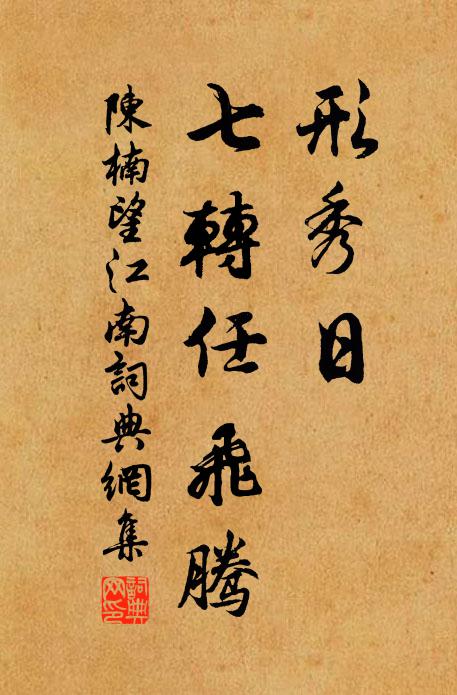 形秀日
七轉任飛騰
陳楠望江南詞典網集
詞典網印